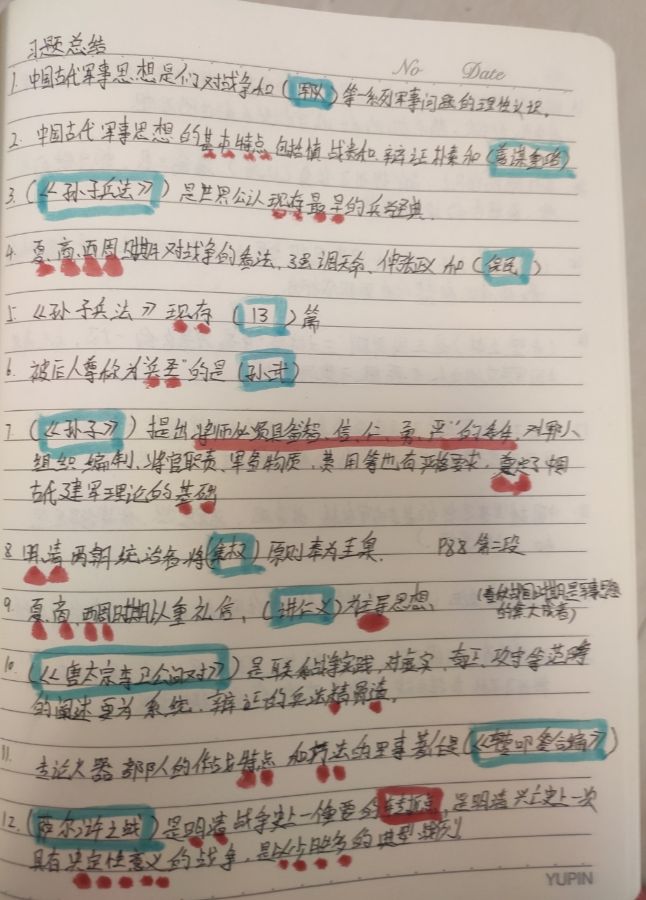 习题总结
No Date
1. 中国古代军事思想是们对战争和(军队)等一系列军事问题的理性认识。
2. 中国古代军事思想的基本特点包括慎战类和,辩证朴素和(善谋重略)
3. (《孙子兵法》)是世界公认现存最早的兵学经典。
4. 夏、商、西周时期对战争的看法,强调天命、伸张政和(保民)
5. 《孙子兵法》现存(13)篇
6. 被后人尊称为"兵圣"的是(孙武)
7 (《孙子》)提出将师必须具备智、信、仁、勇、严"的条件,对
组织编制、将官职责、军备物质、费用等也有严格要求,奠定了中国
古代建军理论的基础
8 明、清两朝统治者将(集权)原则奉为圭臬. P88 第二段
9. 夏、商、西周时期以重礼信,(讲仁义)为主导思想. (春秋战国时期是军事思想
的集大成者)
10. (《唐太宗李卫公问对》)是联系战争实践,对虚实、奇正、攻守等范畴
的阐述更为系统、辩证的兵法
11. 专论火器部队的作战特点和打法的军事著作是(《合编》)
12. (萨尔浒之战)是明清战争史上一个重要的转折点,是明清兴亡史上一次
具有决定性意义的战争,是以少胜多的典型战例
YUPIN